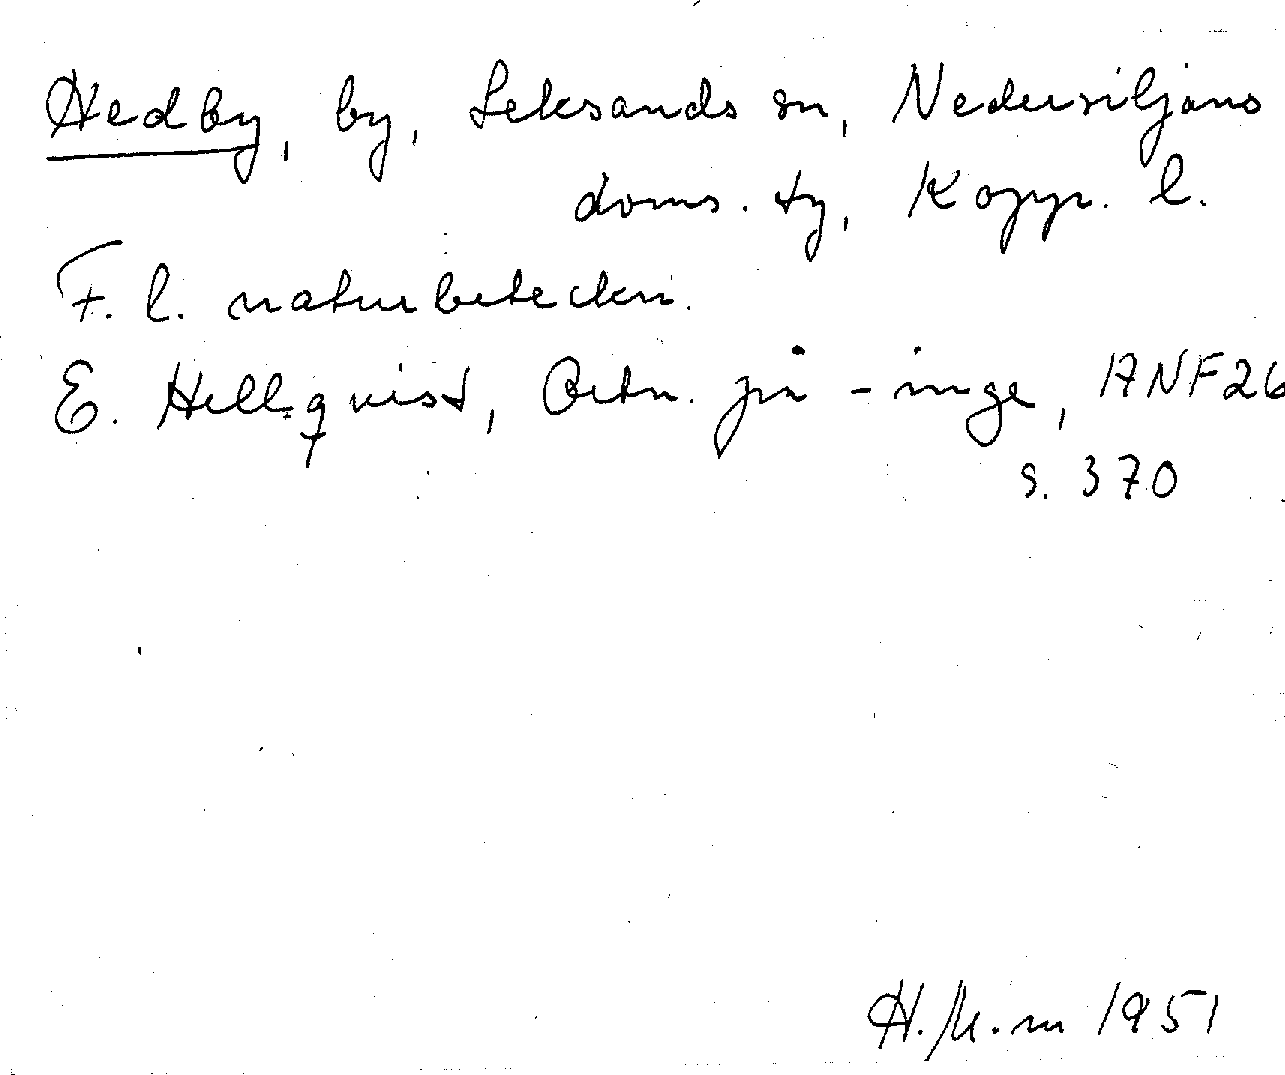 Hedby, by, Leksands sn, Nedersiljans
doms. tg, Kopp. l.
F. l. naturbeteckn.
E. Hellquist, Ortn. på -inge, ANF 26
s. 370
H. M-m 1951